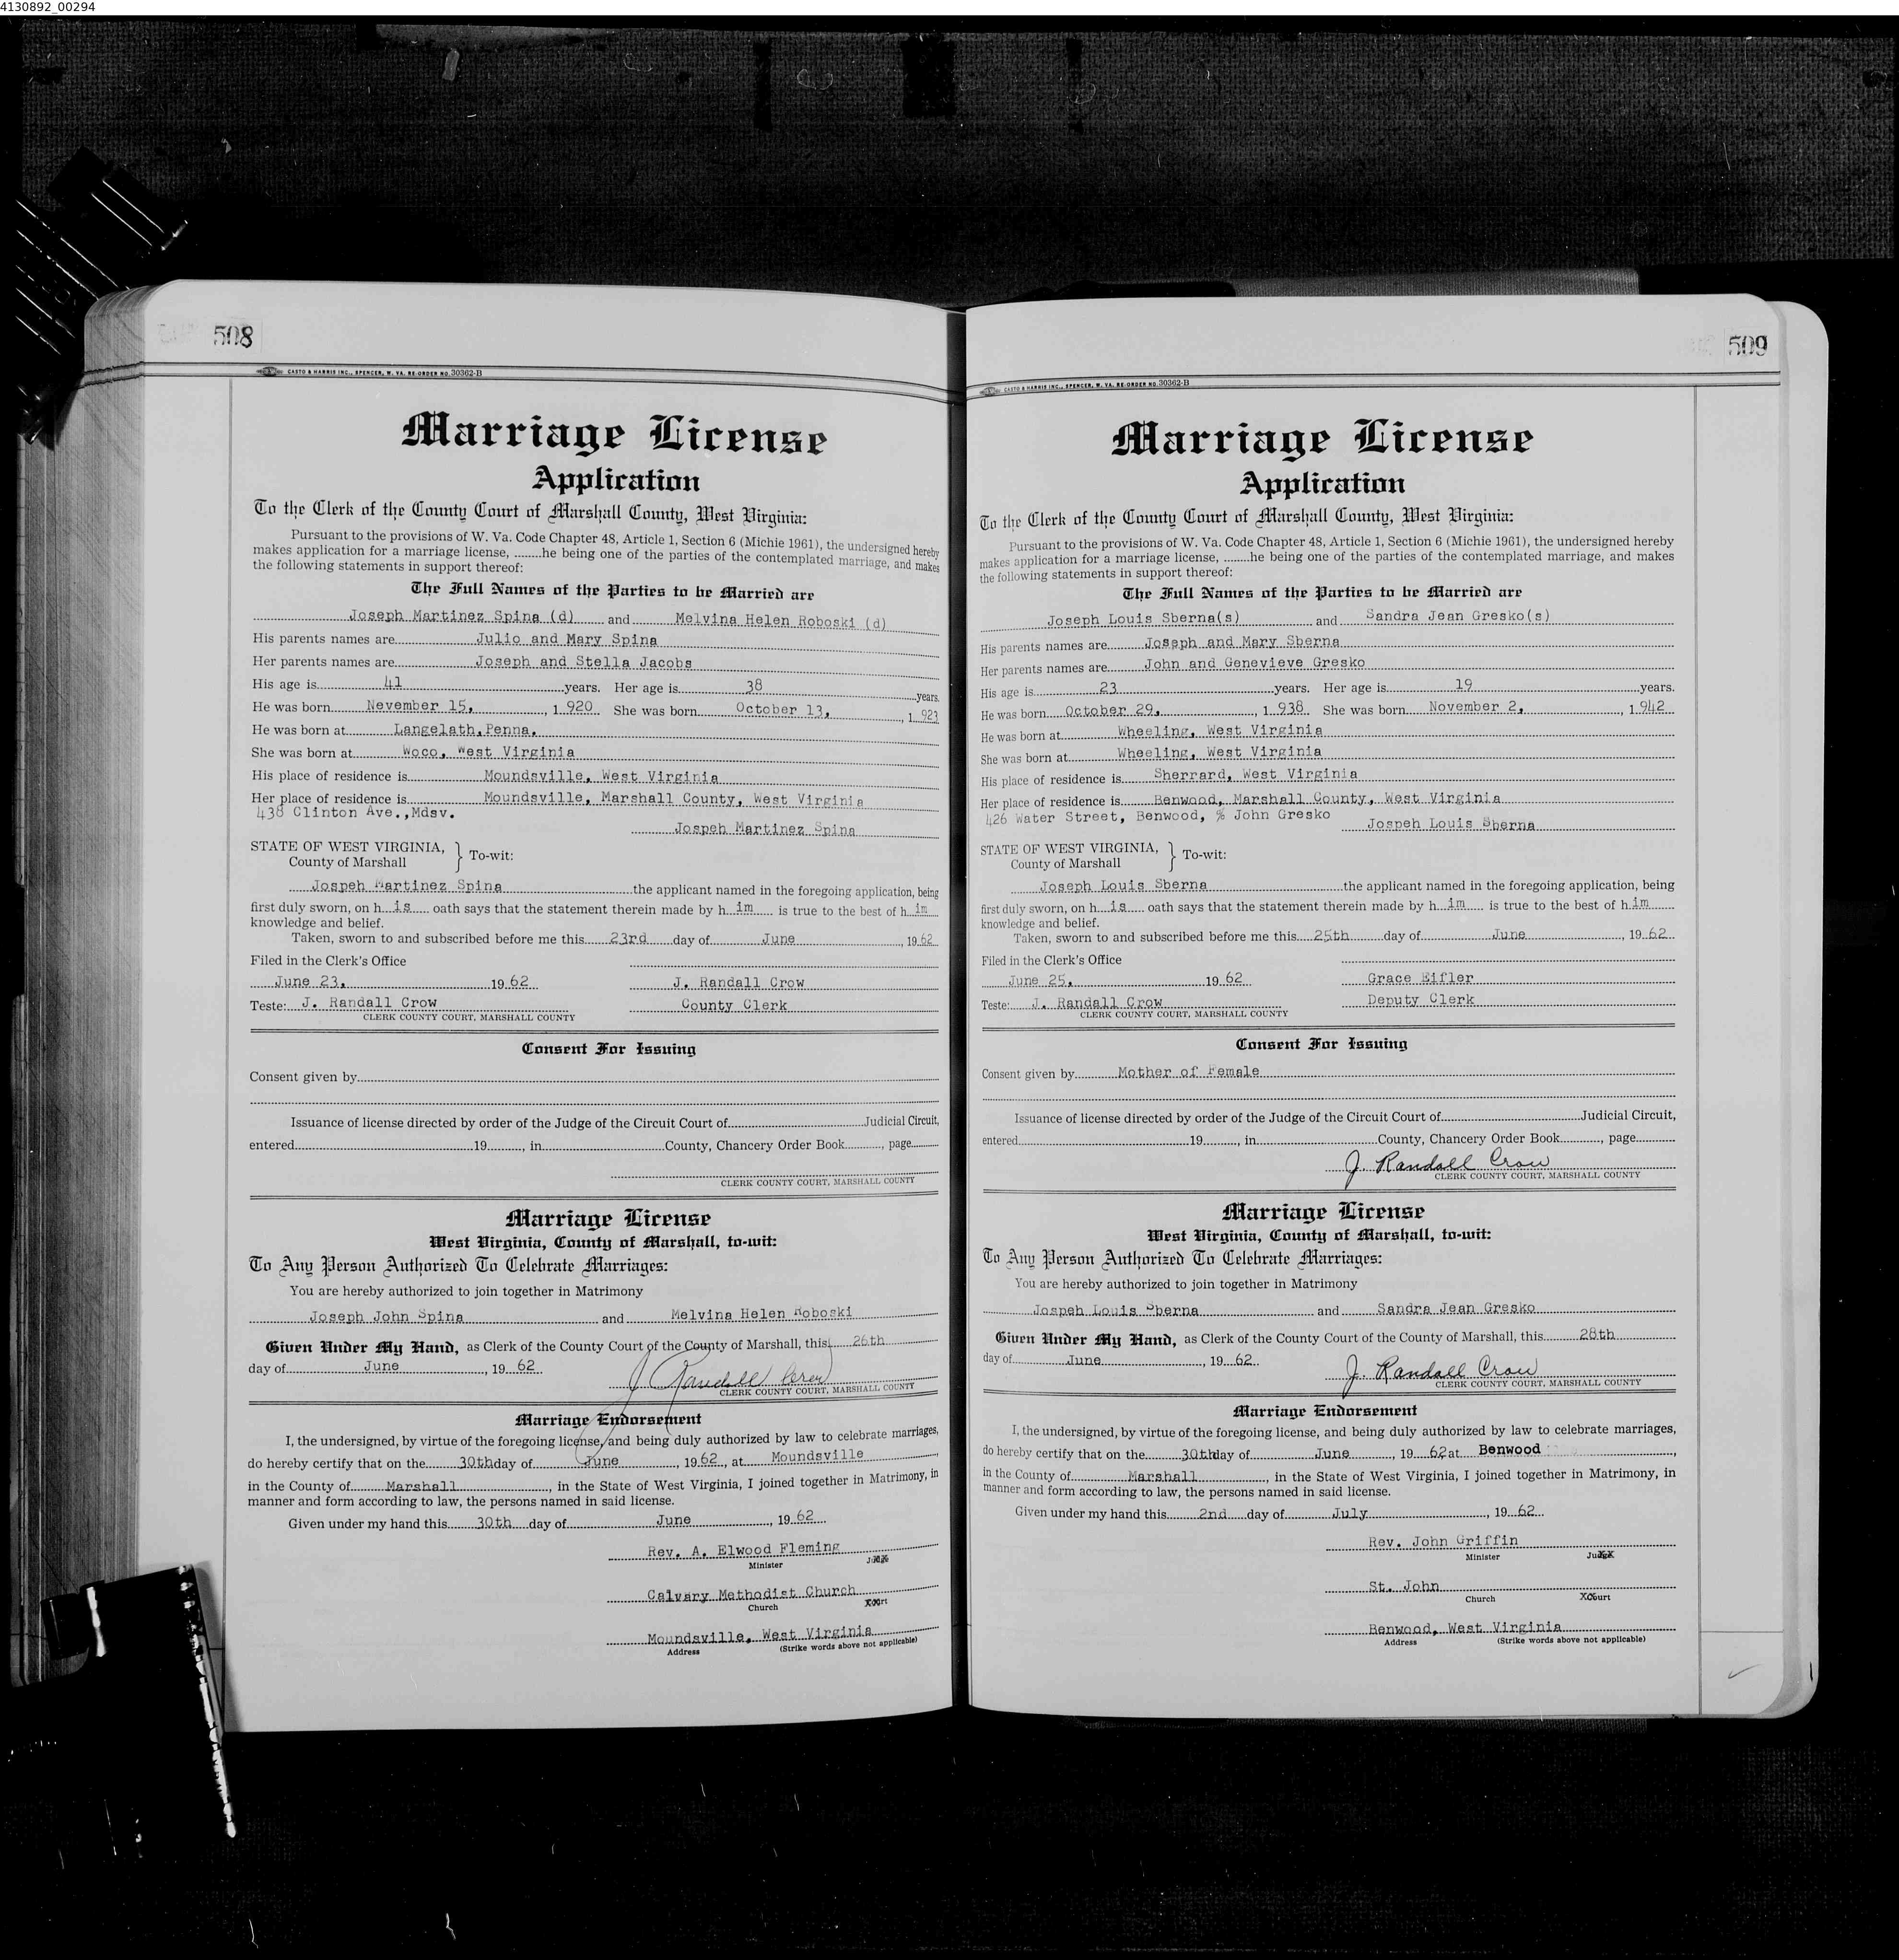 4130892_00294
508
CASTO & HARRIS INC., SPENCER, W. VA. RE-ORDER NO. 30362-B
Marriage License
Application
To the Clerk of the County Court of Marshall County, West Virginia:
Pursuant to the provisions of W. Va. Code Chapter 48, Article 1, Section 6 (Michie 1961), the undersigned hereby
makes application for a marriage license, ........he being one of the parties of the contemplated marriage, and makes
the following statements in support thereof:
The Full Names of the Parties to be Married are
Joseph Martinez Spina (d) and Melvina Helen Roboski (d)
His parents names are Julio and Mary Spina
Her parents names are Joseph and Stella Jacobs
His age is 41 years. Her age is 38 years.
He was born Nevember 15, , 1 920 She was born October 13, , 1 923
He was born at Langelath, Penna.
She was born at Woco, West Virginia
His place of residence is Moundsville, West Virginia
Her place of residence is Moundsville, Marshall County, West Virginia
438 Clinton Ave.,Mdsv.
Jospeh Martinez Spina
STATE OF WEST VIRGINIA,
County of Marshall } To-wit:
Jospeh Martinez Spina the applicant named in the foregoing application, being
first duly sworn, on h is oath says that the statement therein made by h im is true to the best of h im
knowledge and belief.
Taken, sworn to and subscribed before me this 23rd day of June , 19 62
Filed in the Clerk's Office
June 23, 19 62 J. Randall Crow
Teste: J. Randall Crow County Clerk
CLERK COUNTY COURT, MARSHALL COUNTY
Consent For Issuing
Consent given by
Issuance of license directed by order of the Judge of the Circuit Court of Judicial Circuit,
entered 19 , in County, Chancery Order Book , page
CLERK COUNTY COURT, MARSHALL COUNTY
Marriage License
West Virginia, County of Marshall, to-wit:
To Any Person Authorized To Celebrate Marriages:
You are hereby authorized to join together in Matrimony
Joseph John Spina and Melvina Helen Roboski
Given Under My Hand, as Clerk of the County Court of the County of Marshall, this 26th
day of June , 19 62 J Randall Crow
CLERK COUNTY COURT, MARSHALL COUNTY
Marriage Endorsement
I, the undersigned, by virtue of the foregoing license, and being duly authorized by law to celebrate marriages,
do hereby certify that on the 30th day of June , 19 62 , at Moundsville ,
in the County of Marshall , in the State of West Virginia, I joined together in Matrimony, in
manner and form according to law, the persons named in said license.
Given under my hand this 30th day of June , 19 62
Rev. A. Elwood Fleming
Minister Judge
Calvary Methodist Church
Church Court
Moundsville, West Virginia
Address (Strike words above not applicable)
509
CASTO & HARRIS INC., SPENCER, W. VA. RE-ORDER NO. 30362-B
Marriage License
Application
To the Clerk of the County Court of Marshall County, West Virginia:
Pursuant to the provisions of W. Va. Code Chapter 48, Article 1, Section 6 (Michie 1961), the undersigned hereby
makes application for a marriage license, ........he being one of the parties of the contemplated marriage, and makes
the following statements in support thereof:
The Full Names of the Parties to be Married are
Joseph Louis Sberna(s) and Sandra Jean Gresko(s)
His parents names are Joseph and Mary Sberna
Her parents names are John and Genevieve Gresko
His age is 23 years. Her age is 19 years.
He was born October 29, , 1 938 She was born November 2, , 1 942
He was born at Wheeling, West Virginia
She was born at Wheeling, West Virginia
His place of residence is Sherrard, West Virginia
Her place of residence is Benwood, Marshall County, West Virginia
426 Water Street, Benwood, % John Gresko Jospeh Louis Sberna
STATE OF WEST VIRGINIA,
County of Marshall } To-wit:
Joseph Louis Sberna the applicant named in the foregoing application, being
first duly sworn, on h is oath says that the statement therein made by h im is true to the best of h im
knowledge and belief.
Taken, sworn to and subscribed before me this 25th day of June , 19 62
Filed in the Clerk's Office
June 25, 19 62 Grace Eifler
Teste: J. Randall Crow Deputy Clerk
CLERK COUNTY COURT, MARSHALL COUNTY
Consent For Issuing
Consent given by Mother of Female
Issuance of license directed by order of the Judge of the Circuit Court of Judicial Circuit,
entered 19 , in County, Chancery Order Book , page
J. Randall Crow
CLERK COUNTY COURT, MARSHALL COUNTY
Marriage License
West Virginia, County of Marshall, to-wit:
To Any Person Authorized To Celebrate Marriages:
You are hereby authorized to join together in Matrimony
Jospeh Louis Sberna and Sandra Jean Gresko
Given Under My Hand, as Clerk of the County Court of the County of Marshall, this 28th
day of June , 19 62 J. Randall Crow
CLERK COUNTY COURT, MARSHALL COUNTY
Marriage Endorsement
I, the undersigned, by virtue of the foregoing license, and being duly authorized by law to celebrate marriages,
do hereby certify that on the 30th day of June , 19 62 at Benwood ,
in the County of Marshall , in the State of West Virginia, I joined together in Matrimony, in
manner and form according to law, the persons named in said license.
Given under my hand this 2nd day of July , 19 62
Rev. John Griffin
Minister Judge
St. John
Church Court
Benwood, West Virginia
Address (Strike words above not applicable)